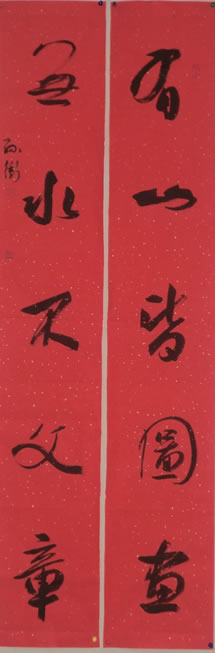 有山皆圖畫
無水不文章